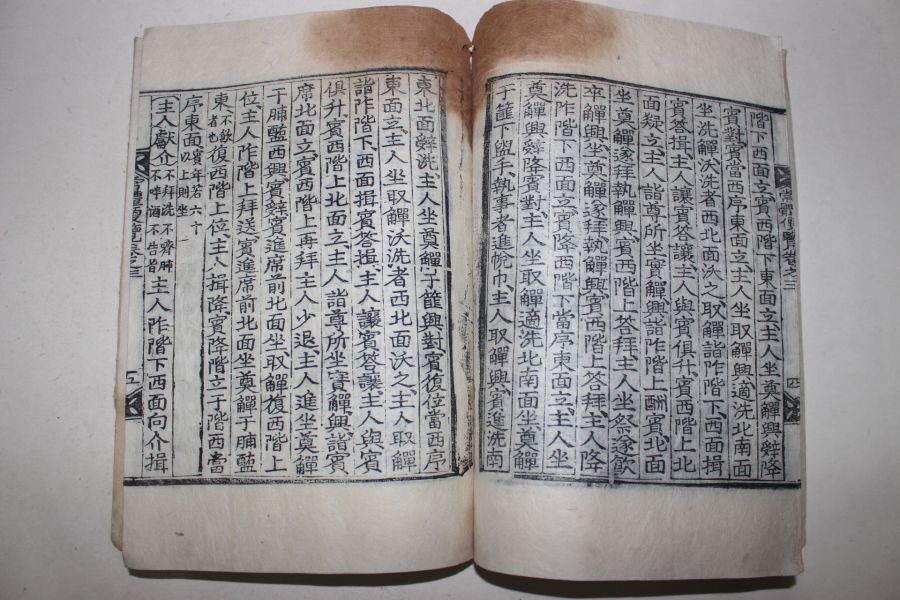 卷之三
四
階下西面立賓西階下東面立主人坐奠觶興辭降
賓對賓當西序東面立主人坐取觶興適洗北南面
坐洗觶沃洗者西北面沃之取觶詣阼階下西面揖
賓答揖主人讓賓答讓主人與賓俱升賓西階上北
面疑立主人詣尊所坐實觶興詣阼階上酬賓北面
坐奠觶遂拜執觶興賓西階上答拜主人坐祭遂飮
卒觶興坐奠觶遂拜執觶興賓西階上答拜主人降
洗阼階下西面立賓降西階下當序東面立主人坐
奠觶興辭降賓對主人坐取觶適洗北南面坐奠觶
于篚下盥手執事者進帨巾主人取觶興賓進洗南
東北面辭洗主人坐奠觶于篚興對賓復位當西序
東面立主人坐取觶沃洗者西北面沃之主人取觶
詣阼階下西面揖賓答揖主人讓賓答讓主人與賓
俱升賓西階上北面立主人詣尊所坐實觶興詣賓
席北面立賓西階上再拜主人少退主人進坐奠觶
于脯醢西興賓辭賓進席前北面坐取觶復西階上
位主人阼階上拜送賓進席前北面坐奠觶于脯醢
東不飮者也復西階上位主人揖降賓降階立于階西當
序東面賓年若六十以上則坐
主人獻介不拜洗不嚌肺不啐酒不告旨主人阼階下西面向介揖
卷之三
五